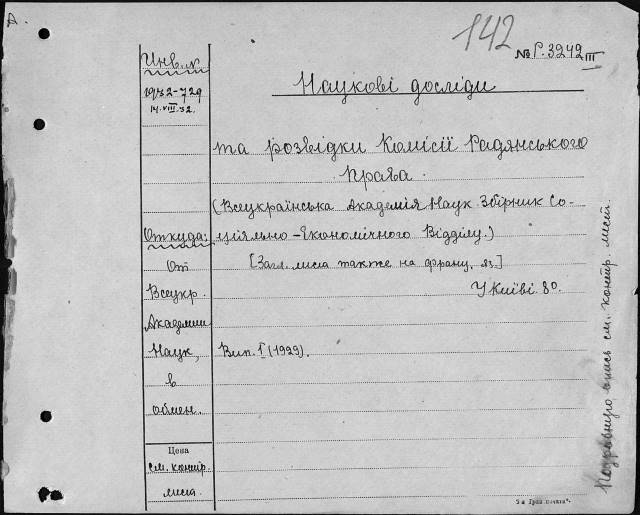 А.
142
№ Г. 3242 III
Инв. №
1932-729
14.VIII.32.
Наукові досліди
та розвідки Комісії Радянського
Права.
(Всеукраїнська Академія Наук. Збірник Со-
ціяльно-Економічного Відділу.)
[Загл. листа также на франц. яз.]
У Київі. 8°.
Вип. I (1929).
Откуда:
От
Всеукр.
Академии
Наук,
в
обмен.
Цена
см. контр.
листа.
Подробную опись см. контр. лист.